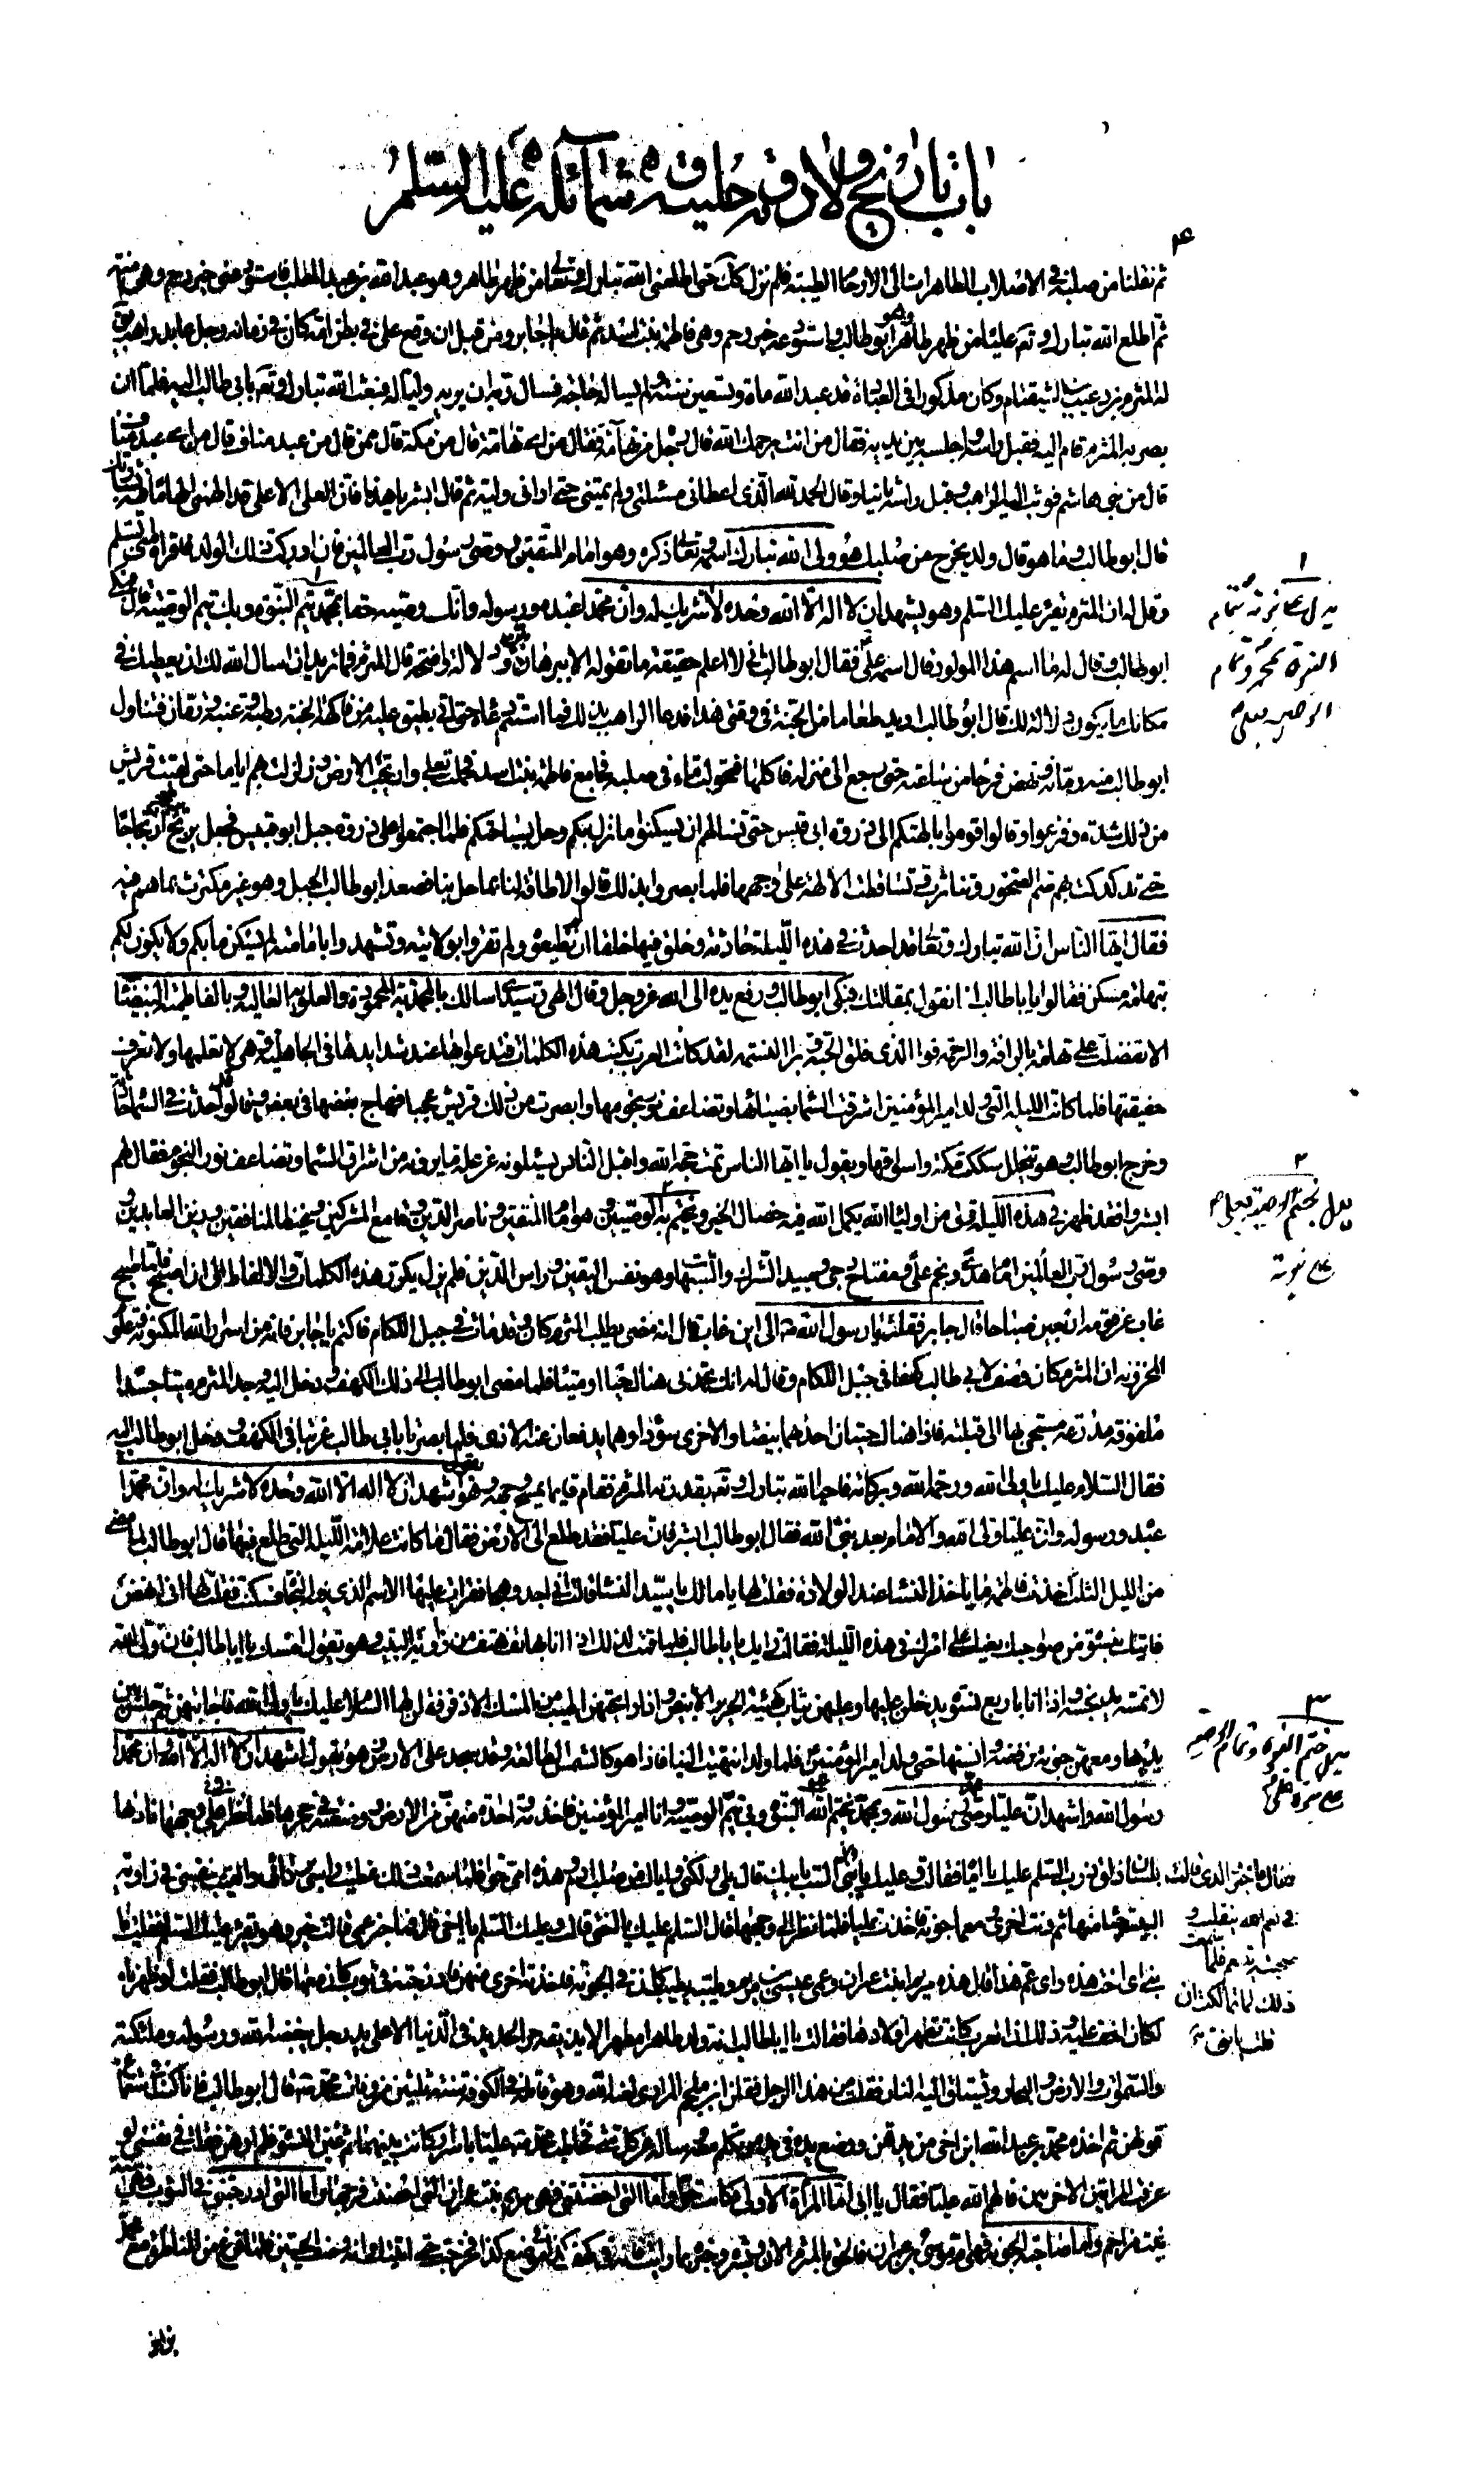 باب تاريخ ولادته وحليته وشمائله عليه السلم
ثم نقلنا من صلبه في الاصلاب الطاهرات الى الارحام الطيبة فلم نزل كك حتى اطلعني الله تبارك وتعالى من ظهر طاهر وهو عبد الله بن عبد المطلب فاستودعني خير رحم وهي
ثم اطلع الله تبارك وتع عليا من ظهر طاهر وهو ابو طالب واستودعه خير رحم وهي فاطمة بنت اسد ثم قال يا جابر ومن قبل ان وقع علي في بطن امه كان في زمانه رجل عابد راهب يق
له المثرم بن وكان مذكورا في العبادة قد عبد الله مائة وتسعين سنة ولم يساله حاجة فسال ربه ان يريه وليا له فبعث الله تبارك وتع بابي طالب اليه فلما ان
بصر به المثرم قام اليه فقبل راسه واجلسه بين يديه فقال من انت يرحمك الله قال رجل من تهامة فقال من اي تهامة قال من مكة قال ممن قال من عبد مناف قال من اي عبد مناف
قال من بني هاشم فوثب اليه الراهب وقبل راسه ثانيا وقال الحمد لله الذي اعطاني مسئلتي ولم يمتني حتى اراني وليه ثم قال ابشر يا هذا فان العلي الاعلى قد الهمني الهاما فيه بشارتك
قال ابو طالب وما هو قال ولد يخرج من صلبك هو ولي الله تبارك اسمه وتعالى ذكره وهو امام المتقين ووصي رسول رب العالمين فان ادركت ذلك الولد فاقراه مني السلم
وقل له ان المثرم يقرء عليك السلم وهو يشهد ان لا اله الا الله وحده لا شريك له وان محمدا عبده ورسوله وانك وصيه حقا بمحمد يتم النبوة وبك يتم الوصية قال فبكى
ابو طالب وقال له ما اسم هذا المولود قال اسمه علي فقال ابو طالب اني لا اعلم حقيقة ما تقوله الا ببرهان بين ودلالة واضحة قال المثرم فما تريد ان اسال الله لك ان يعطيك في
مكانك ما يكون دلالة لك قال ابو طالب اريد طعاما من الجنة في وقتي هذا فدعا الراهب بذلك فما استتم دعاءه حتى اتي بطبق عليه من فاكهة الجنة رطبة وعنبة ورمان فتناول
ابو طالب منه رمانة ونهض فرحا من ساعته حتى رجع الى منزله فاكلها فتحولت ماء في صلبه فجامع فاطمة بنت اسد فحملت بعلي وارتجت الارض وزلزلت بهم اياما حتى لقيت قريش
من ذلك شدة وفزعوا وقالوا قوموا بالهتكم الى ذروة ابي قبيس حتى نسالهم ان يسكنوا ما نزل بكم وحل بساحتكم فلما اجتمعوا على ذروة جبل ابو قبيس فجعل يرتج ارتجاجا
حتى تدكدكت بهم صم الصخور وتناثرت وتساقطت الالهة على وجهها فلما بصروا بذلك قالوا لا طاقة لنا بما حل بنا فصعد ابو طالب الجبل وهو غير مكترث بما هم فيه
فقال ايها الناس ان الله تبارك وتعالى قد احدث في هذه الليلة حادثة وخلق فيها خلقا ان لم تطيعوه ولم تقروا بولايته وتشهدوا بامامته لم يسكن ما بكم ولا يكون لكم
بتهامة مسكن فقالوا يا ابا طالب انا نقول بمقالتك فبكى ابو طالب ورفع يده الى الله عز وجل وقال الهي وسيدي اسالك بالمحمدية المحمودة وبالعلوية العالية وبالفاطمية البيضاء
الا تفضلت على تهامة بالرافة والرحمة فوالذي فلق الحبة وبرا النسمة لقد كانت العرب تكتب هذه الكلمات فتدعوا بها عند شدايدها في الجاهلية وهي لا تعلمها ولا تعرف
حقيقتها فلما كانت الليلة التي ولد امير المؤمنين اشرقت السماء بضيائها وتضاعف نور نجومها وابصرت من ذلك قريش عجبا فهاج بعضها في بعض وقالوا قد احدث في السماء حادثة
وخرج ابو طالب وهو يتخلل سكك مكة واسواقها ويقول يا ايها الناس تمت حجة الله واقبل الناس يسئلونه عن علة ما يرونه من اشراق السماء وتضاعف نور النجوم فقال لهم
ابشروا فقد ظهر في هذه الليلة ولي من اولياء الله يكمل الله فيه خصال الخير ويختم به الوصيين وهو امام المتقين وناصر الدين وقامع المشركين وغيظ المنافقين وزين العابدين
ووصي رسول رب العالمين امام هدى ونجم على ومفتاح دجى ومبيد الشرك والشبهات وهو نفس اليقين وراس الدين فلم يزل يكرر هذه الكلمات والالفاظ الى ان اصبح فلما اصبح
غاب عن قومه اربعين صباحا قال جابر فقلت يا رسول الله الى اين غاب قال انه مضى يطلب المثرم كان وقد مات في جبل اللكام فاكتم يا جابر فانه من اسرار الله المكنونة وعلومه
المخزونة ان المثرم كان وصف لابي طالب كهفا في جبل اللكام وقال له انك تجدني هناك حيا او ميتا فلما مضى ابو طالب الى ذلك الكهف ودخل اليه وجد المثرم ميتا جسدا
ملفوفة مدرعة مسجى بها الى قبلته فاذا هناك حيتان احدهما بيضاء والاخرى سوداء وهما يدفعان عنه الاذى فلما بصرتا بابي طالب غربتا في الكهف ودخل ابو طالب اليه
فقال السلام عليك يا ولي الله ورحمة الله وبركاته فاحيا الله تبارك وتع بقدرته المثرم فقام قائما يمسح وجهه وهو يقول اشهد ان لا اله الا الله وحده لا شريك له وان محمدا
عبده ورسوله وان عليا ولي الله والامام بعد نبي الله فقال ابو طالب ابشر فان عليا فقد طلع الى الارض فقال ما كانت علامة الليلة التي طلع فيها قال ابو طالب لما مضى
من الليل الثلث اخذت فاطمة ما ياخذ النساء عند الولادة فقلت لها ما لك يا سيدة النساء قالت اني اجد وهجا فقرات عليها الاسم الذي فيه النجاة فسكنت فقلت لها اني انهض
فاتيك بنسوة من صواحبك يعينك على امرك في هذه الليلة فقالت رايك يا ابا طالب فلما قمت لذلك اذا انا بهاتف هتف من زاوية البيت وهو يقول امسك يا ابا طالب فان ولي الله
لا تمسه يد نجسة واذا انا باربع نسوة يدخلن عليها وعليهن ثياب كهيئة الحرير الابيض واذا رائحتهن اطيب من المسك الاذفر فقلن لها السلام عليك يا ولية الله فاجابتهن ثم جلسن بين
يديها ومعهن جونة من فضة وانسنها حتى ولد امير المؤمنين فلما ولد انتهيت اليه فاذا هو كالشمس الطالعة وقد سجد على الارض وهو يقول اشهد ان لا اله الا الله وان محمدا
رسول الله واشهد ان عليا وصي رسول الله وبمحمد يختم الله النبوة وبي يتم الوصية وانا امير المؤمنين فاخذته واحدة منهن من الارض ووضعته في حجرها فلما نظر علي في وجهها نادها
بلسان ذلق ذرب السلم عليك يا اماه فقالت وعليك يا بني السلم قال لها
البيت
بني اي اخت هذه واي عم هذا قال هذه مريم ابنة عمران وعمي عيسى بن مريم وطيبته بطيب كان في الجونة فاخذته اخرى منهن فادرجته في ثوب كان معها قال ابو طالب فقلت لو طهرناه
لكان اخف عليه وذلك ان العرب كانت تطهر اولادها فقالت يا ابا طالب انه ولد طاهرا مطهرا لا يذيقه حر الحديد في الدنيا الا على يد رجل يبغضه الله ورسوله وملئكته
والسموات والارض والبحار وتشتاق اليه النار فقلت من هذا الرجل فقلن ابن ملجم المرادي لعنه الله وهو قاتله في الكوفة سنة ثلثين من وفات محمد قال ابو طالب فانا كنت في استماع
قولهن ثم اخذه محمد بن عبد الله ابن اخي من يدهن ووضع يده في يده وتكلم معه وساله عن كل شيء فخاطب محمد عليا باسرار كانت بينهما ثم غبن النسوة فلم ارهن فقلت في نفسي لو
عرفت المراتين الاخريين فالهم الله عليا فقال يا ابي اما المراة الاولى فكانت حوا واما التي احضنتني فهي مريم بنت عمران التي احصنت فرجها واما التي ادرجتني في الثوب فهي اسية
بنت مزاحم واما صاحبة الجونة فهي ام موسى بن عمران فالحق بالمثرم الان وبشره وخبره بما رايت فانه في كهف كذا في موضع كذا فخرجت حتى
بدل بمحمد يتم تمام
النبوة بمحمد وتمام
الوصية بعلي
بدل يختم الوصية بعلي
بدل ختم النبوة وتمام الوصية